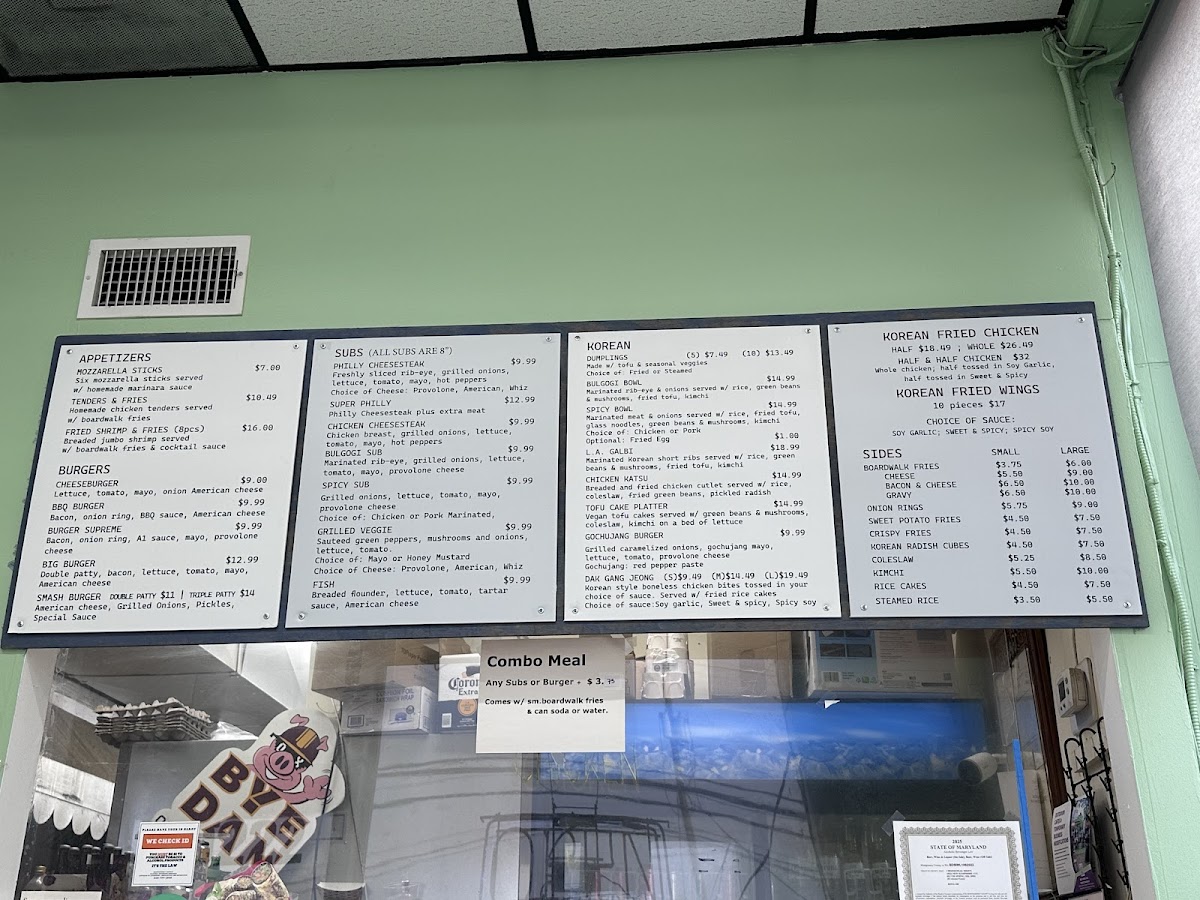 APPETIZERS
MOZZARELLA STICKS $7.00
Six mozzarella sticks served
w/ homemade marinara sauce
TENDERS & FRIES $10.49
Homemade chicken tenders served
w/ boardwalk fries
FRIED SHRIMP & FRIES (8pcs) $16.00
Breaded jumbo shrimp served
w/ boardwalk fries & cocktail sauce
BURGERS
CHEESEBURGER $9.00
Lettuce, tomato, mayo, onion American cheese
BBQ BURGER $9.99
Bacon, onion ring, BBQ sauce, American cheese
BURGER SUPREME $9.99
Bacon, onion ring, A1 sauce, mayo, provolone
cheese
BIG BURGER $12.99
Double patty, bacon, lettuce, tomato, mayo,
American cheese
SMASH BURGER DOUBLE PATTY $11 | TRIPLE PATTY $14
American cheese, Grilled Onions, Pickles,
Special Sauce
SUBS (ALL SUBS ARE 8")
PHILLY CHEESESTEAK $9.99
Freshly sliced rib-eye, grilled onions,
lettuce, tomato, mayo, hot peppers
Choice of Cheese: Provolone, American, Whiz
SUPER PHILLY $12.99
Philly Cheesesteak plus extra meat
CHICKEN CHEESESTEAK $9.99
Chicken breast, grilled onions, lettuce,
tomato, mayo, hot peppers
BULGOGI SUB $9.99
Marinated rib-eye, grilled onions, lettuce,
tomato, mayo, provolone cheese
SPICY SUB $9.99
Grilled onions, lettuce, tomato, mayo,
provolone cheese
Choice of: Chicken or Pork Marinated,
GRILLED VEGGIE $9.99
Sauteed green peppers, mushrooms and onions,
lettuce, tomato.
Choice of: Mayo or Honey Mustard
Choice of Cheese: Provolone, American, Whiz
FISH $9.99
Breaded flounder, lettuce, tomato, tartar
sauce, American cheese
KOREAN
DUMPLINGS (5) $7.49 (10) $13.49
Made w/ tofu & seasonal veggies
Choice of: Fried or Steamed
BULGOGI BOWL $14.99
Marinated rib-eye & onions served w/ rice, green beans
& mushrooms, fried tofu, kimchi
SPICY BOWL $14.99
Marinated meat & onions served w/ rice, fried tofu,
glass noodles, green beans & mushrooms, kimchi
Choice of: Chicken or Pork
Optional: Fried Egg $1.00
L.A. GALBI $18.99
Marinated Korean short ribs served w/ rice, green
beans & mushrooms, fried tofu, kimchi
CHICKEN KATSU $14.99
Breaded and fried chicken cutlet served w/ rice,
coleslaw, fried green beans, pickled radish
TOFU CAKE PLATTER $14.99
Vegan tofu cakes served w/ green beans & mushrooms,
coleslaw, kimchi on a bed of lettuce
GOCHUJANG BURGER $9.99
Grilled caramelized onions, gochujang mayo,
lettuce, tomato, provolone cheese
Gochujang: red pepper paste
DAK GANG JEONG (S)$9.49 (M)$14.49 (L)$19.49
Korean style boneless chicken bites tossed in your
choice of sauce. Served w/ fried rice cakes
Choice of sauce:Soy garlic, Sweet & spicy, Spicy soy
KOREAN FRIED CHICKEN
HALF $18.49 ; WHOLE $26.49
HALF & HALF CHICKEN $32
Whole chicken; half tossed in Soy Garlic,
half tossed in Sweet & Spicy
KOREAN FRIED WINGS
10 pieces $17
CHOICE OF SAUCE:
SOY GARLIC; SWEET & SPICY; SPICY SOY
SIDES SMALL LARGE
BOARDWALK FRIES $3.75 $6.00
CHEESE $5.50 $9.00
BACON & CHEESE $6.50 $10.00
GRAVY $6.50 $10.00
ONION RINGS $5.75 $9.00
SWEET POTATO FRIES $4.50 $7.50
CRISPY FRIES $4.50 $7.50
KOREAN RADISH CUBES $4.50 $7.50
COLESLAW $5.25 $8.50
KIMCHI $5.50 $10.00
RICE CAKES $4.50 $7.50
STEAMED RICE $3.50 $5.50
Combo Meal
Any Subs or Burger + $ 3.75
Comes w/ sm.boardwalk fries
& can soda or water.
Corona
Extra
BYE
DAM
WE CHECK ID
IT'S THE LAW
2025
STATE OF MARYLAND